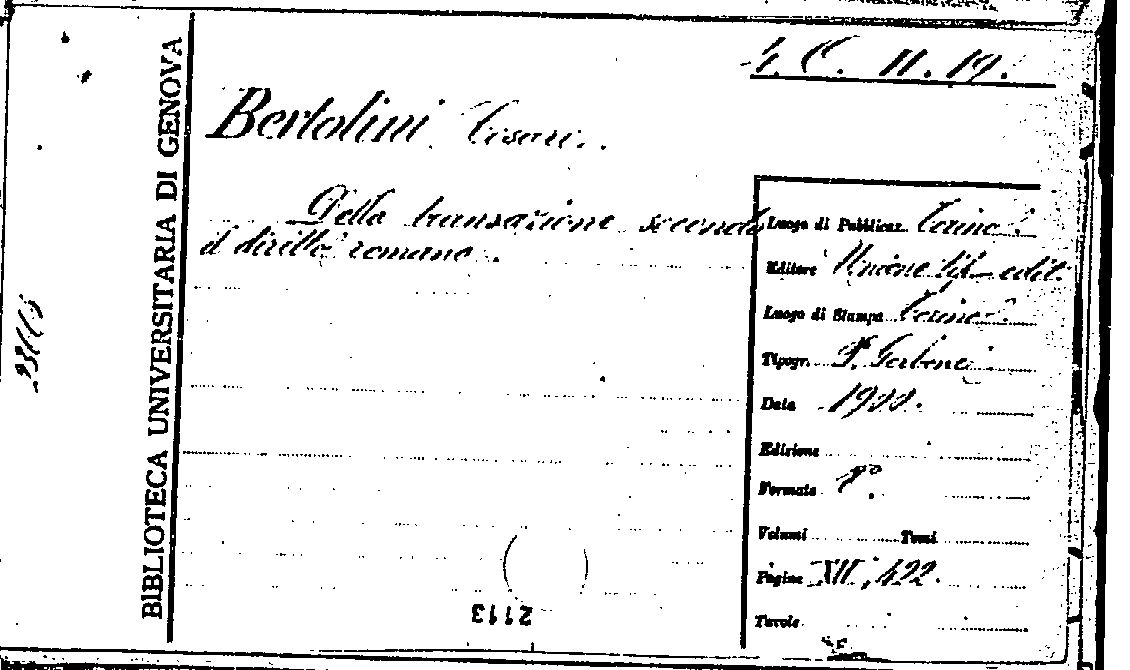 4. C. II. 19.
BIBLIOTECA UNIVERSITARIA DI GENOVA
Bertolini Cesare.
Della transazione secondo
il diritto romano.
Luogo di Pubblicaz. Torino
Editore Unione tip-edit.
Luogo di Stampa Torino
Tipogr.
Data 1900.
Edizione
Formato 8°.
Volumi Tomi
Pagine XII, 422.
Tavole
2113